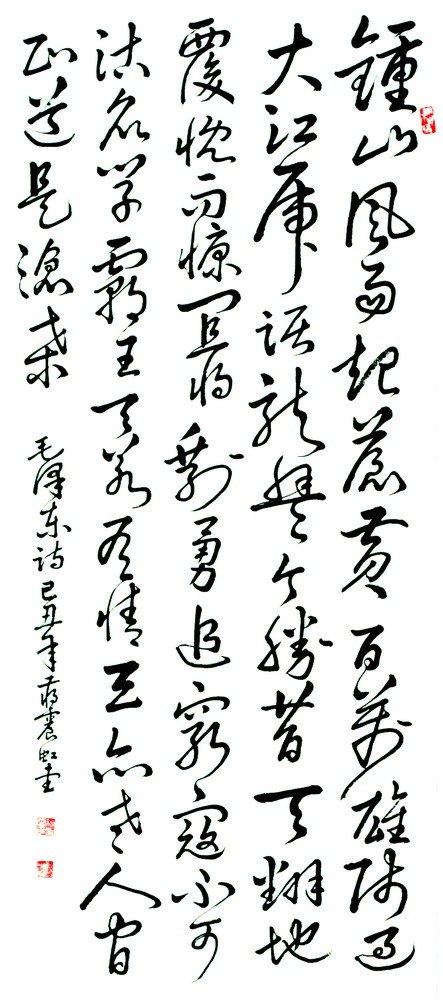 鍾山風雨起蒼黄百萬雄師過
大江虎踞龍盤今勝昔天翻地
覆慨而慷宜將剩勇追窮寇不可
沽名學霸王天若有情天亦老人間
正道是滄桑
毛澤東詩己丑年蔣震虹書